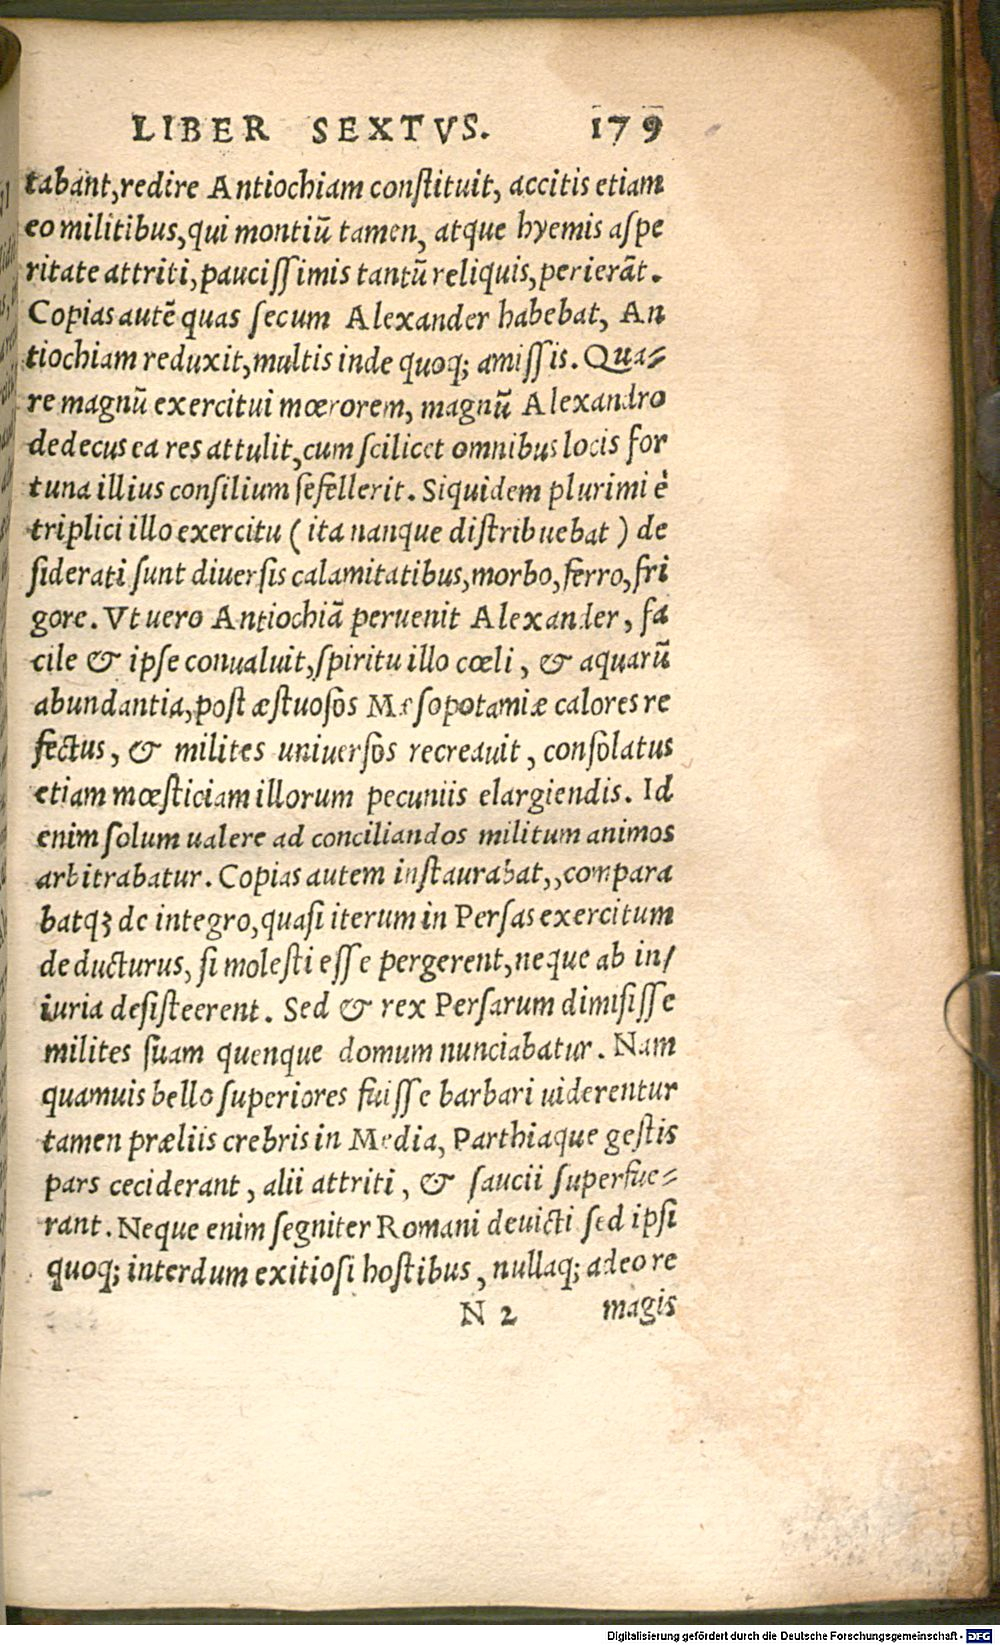 LIBER SEXTVS. 179
tabant,redire Antiochiam conſtituit, accitis etiam
eo militibus,qui montiũ tamen, atque hyemis aſpe
ritate attriti,pauciſſimis tantũ reliquis,perierãt.
Copias autẽ quas ſecum Alexander habebat, An
tiochiam reduxit,multis inde quoq; amiſſis. Qua⸗
re magnũ exercitui mœrorem, magnũ Alexandro
dedecus ea res attulit,cum ſcilicet omnibus locis for
tuna illius conſilium fefellerit. Siquidem plurimi è
triplici illo exercitu ( ita nanque diſtribuebat ) de
ſiderati ſunt diuerſis calamitatibus,morbo,ferro,fri
gore. Vt uero Antiochiã peruenit Alexander, fa
cile & ipſe conualuit,ſpiritu illo cœli, & aquarũ
abundantia,poſt æſtuoſos Meſopotamiæ calores re
fectus, & milites uniuerſos recreauit, conſolatus
etiam mœſticiam illorum pecuniis elargiendis. Id
enim ſolum ualere ad conciliandos militum animos
arbitrabatur. Copias autem inſtaurabat,,compara
batqꝫ de integro,quaſi iterum in Perſas exercitum
deducturus, ſi moleſti eſſe pergerent,neque ab in/
iuria deſiſteerent. Sed & rex Perſarum dimiſiſſe
milites ſuam quenque domum nunciabatur. Nam
quamuis bello ſuperiores fuiſſe barbari uiderentur
tamen præliis crebris in Media, Parthiaque geſtis
pars ceciderant, alii attriti, & ſaucii ſuperfue⸗
rant. Neque enim ſegniter Romani deuicti ſed ipſi
quoq; interdum exitioſi hoſtibus, nullaq; adeo re
N 2 magis
Digitalisierung gefördert durch die Deutsche Forschungsgemeinschaft - DFG